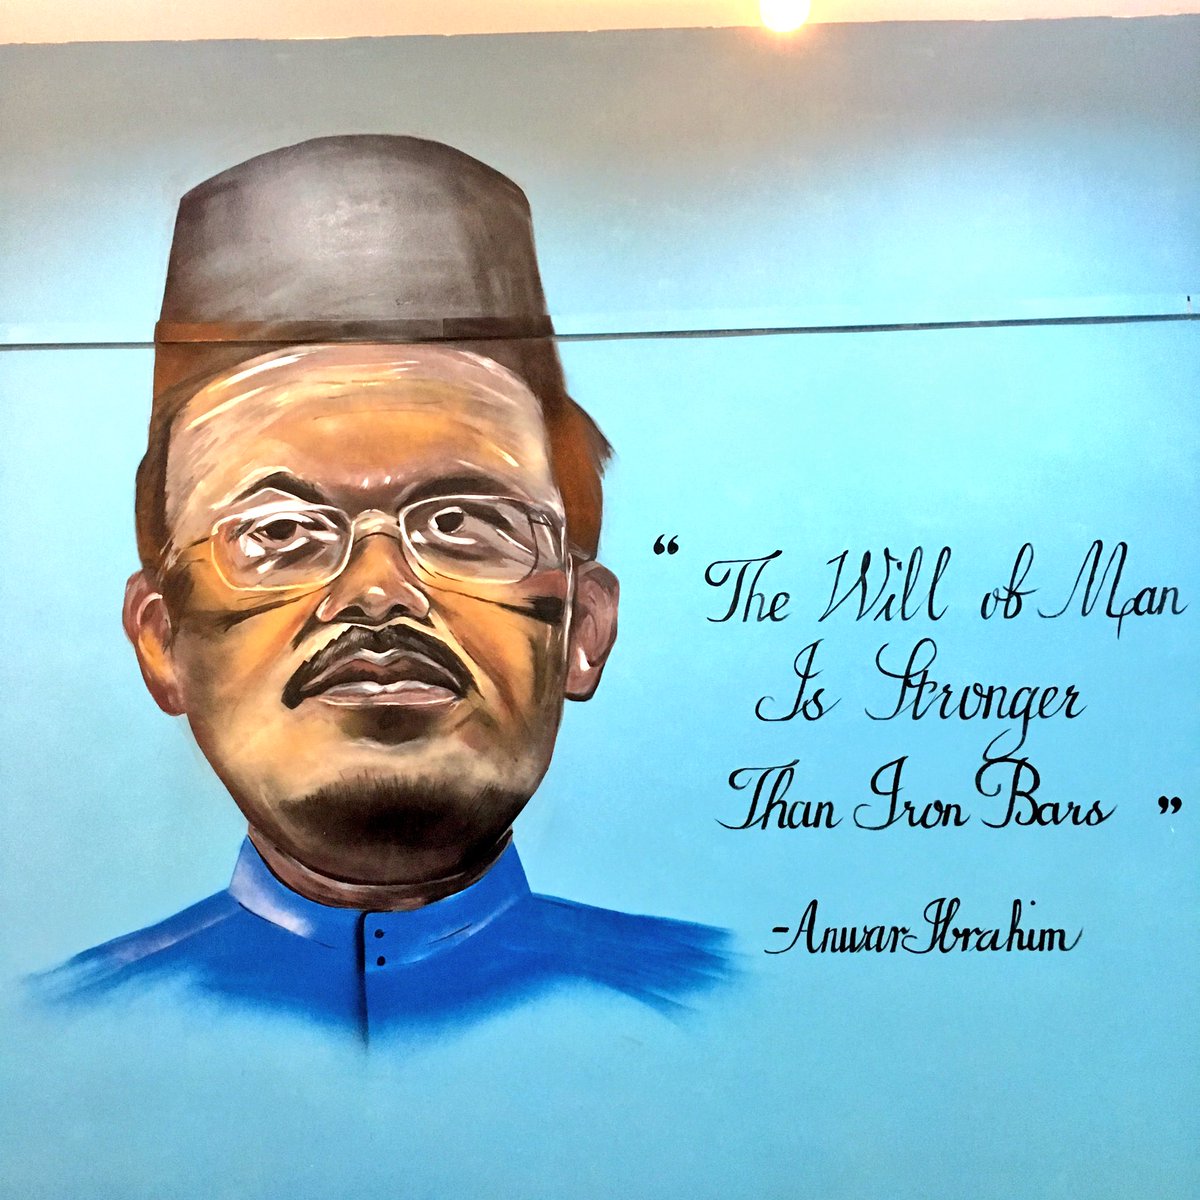 “ The Will of Man
Is Stronger
Than Iron Bars ”
-Anwar Ibrahim